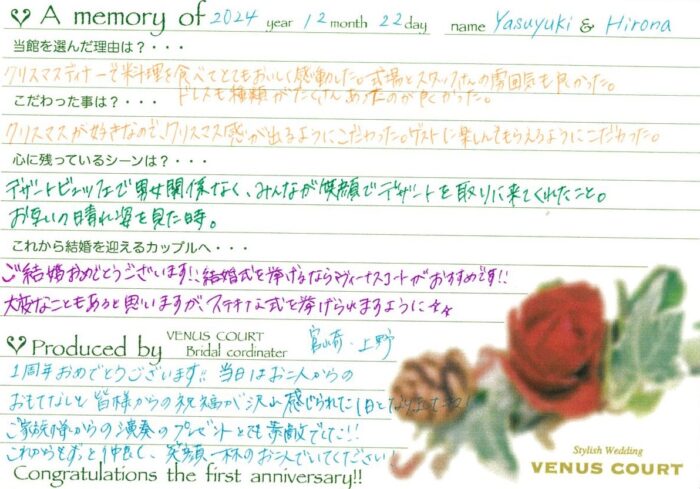 A memory of 2024 year 12 month 22 day name Yasuyuki & Hirona
当館を選んだ理由は？・・・
クリスマスディナーで料理を食べてとてもおいしく感動した。式場とスタッフさんの雰囲気も良かった。
ドレスも種類がたくさんあったのが良かった。
こだわった事は？・・・
クリスマスが好きなので、クリスマス感が出るようにこだわった。ゲストに楽しんでもらえるようにこだわった。
心に残っているシーンは？・・・
デザートビュッフェで男女関係なく、みんなが笑顔でデザートを取りに来てくれたこと。
お互いの晴れ姿を見た時。
これから結婚を迎えるカップルへ・・・
ご結婚おめでとうございます!!結婚式を挙げるならヴィーナスコートがおすすめです!!
大変なこともあると思いますが、ステキな式を挙げられますように
Produced by VENUS COURT Bridal cordinater 宮崎・上野
1周年おめでとうございます!! 当日はお二人からの
おもてなしと皆様からの祝福が沢山感じられた1日となりましたネ!
ご家族様からの演奏のプレゼントとても素敵でした!!
これからもずっと仲良く、笑顔一杯のお二人でいてください!
Congratulations the first anniversary!!
Stylish Wedding
VENUS COURT